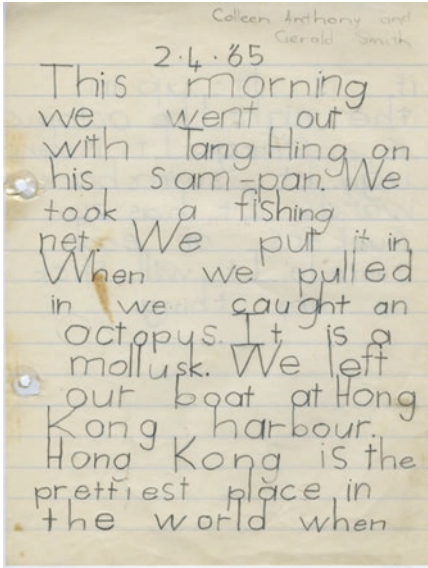 Colleen Anthony and
Gerald Smith
2.4.'65
This morning
we went out
with Tang Hing on
his sam-pan. We
took a fishing
net. We put it in
When we pulled
in we caught an
octopus. It is a
mollusk. We left
our boat at Hong
Kong harbour.
Hong Kong is the
prettiest place in
the world when